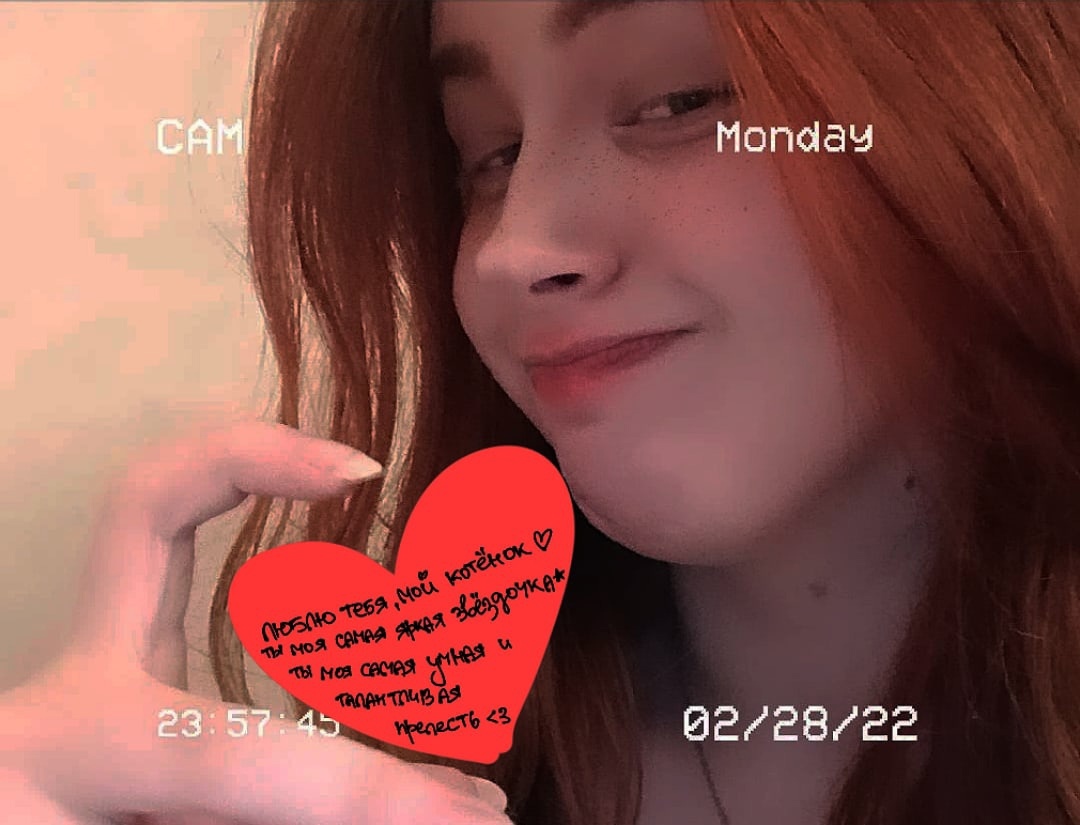 CAM
Monday
люблю тебя, мой котёнок ♡
ты моя самая яркая звёздочка*
ты моя самая умная и
талантливая
прелесть <3
23:57:45
02/28/22